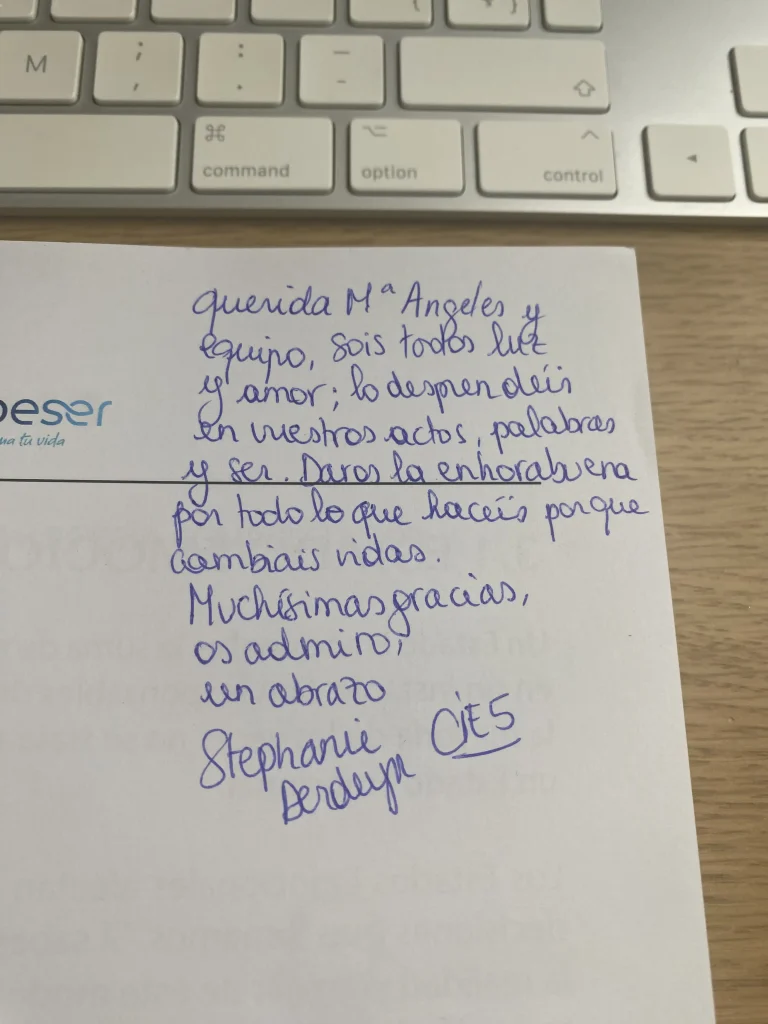 M
;
,
:
.
—
-
⌘
command
⌥
option
^
control
◄
querida Mª Angeles y
equipo, sois todos luz
y amor; lo desprendéis
en vuestros actos, palabras
y ser. Daros la enhorabuena
por todo lo que hacéis porque
cambiais vidas.
Muchísimas gracias,
os admiro,
un abrazo
Stephanie CiE5
Derdeyn
eser
tu vida